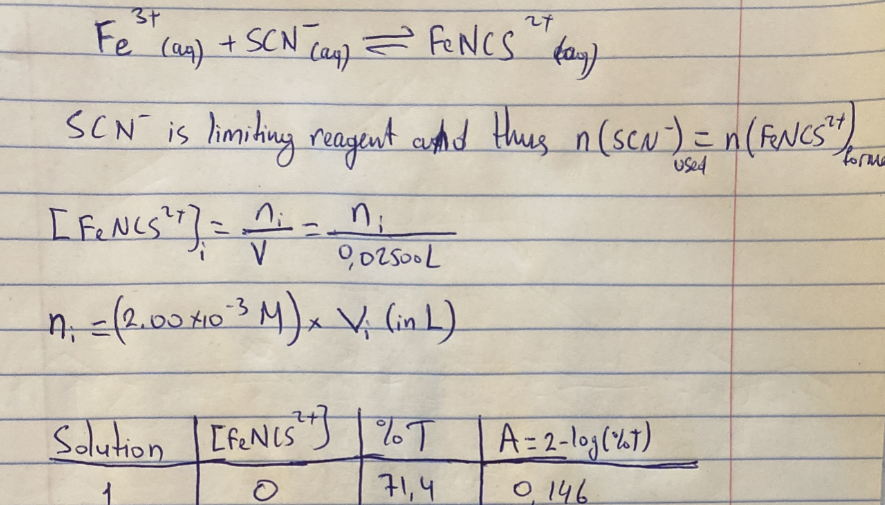 Fe³⁺(aq) + SCN⁻(aq) ⇌ FeNCS²⁺(aq)
SCN⁻ is limiting reagent and thus n(SCN⁻)used = n(FeNCS²⁺)
[FeNCS²⁺]i = ni/V = ni/0,02500L
ni = (2.00 x10⁻³ M) x Vi (in L)
Solution [FeNCS²⁺] %T A = 2-log(%T)
1 0 71,4 0,146